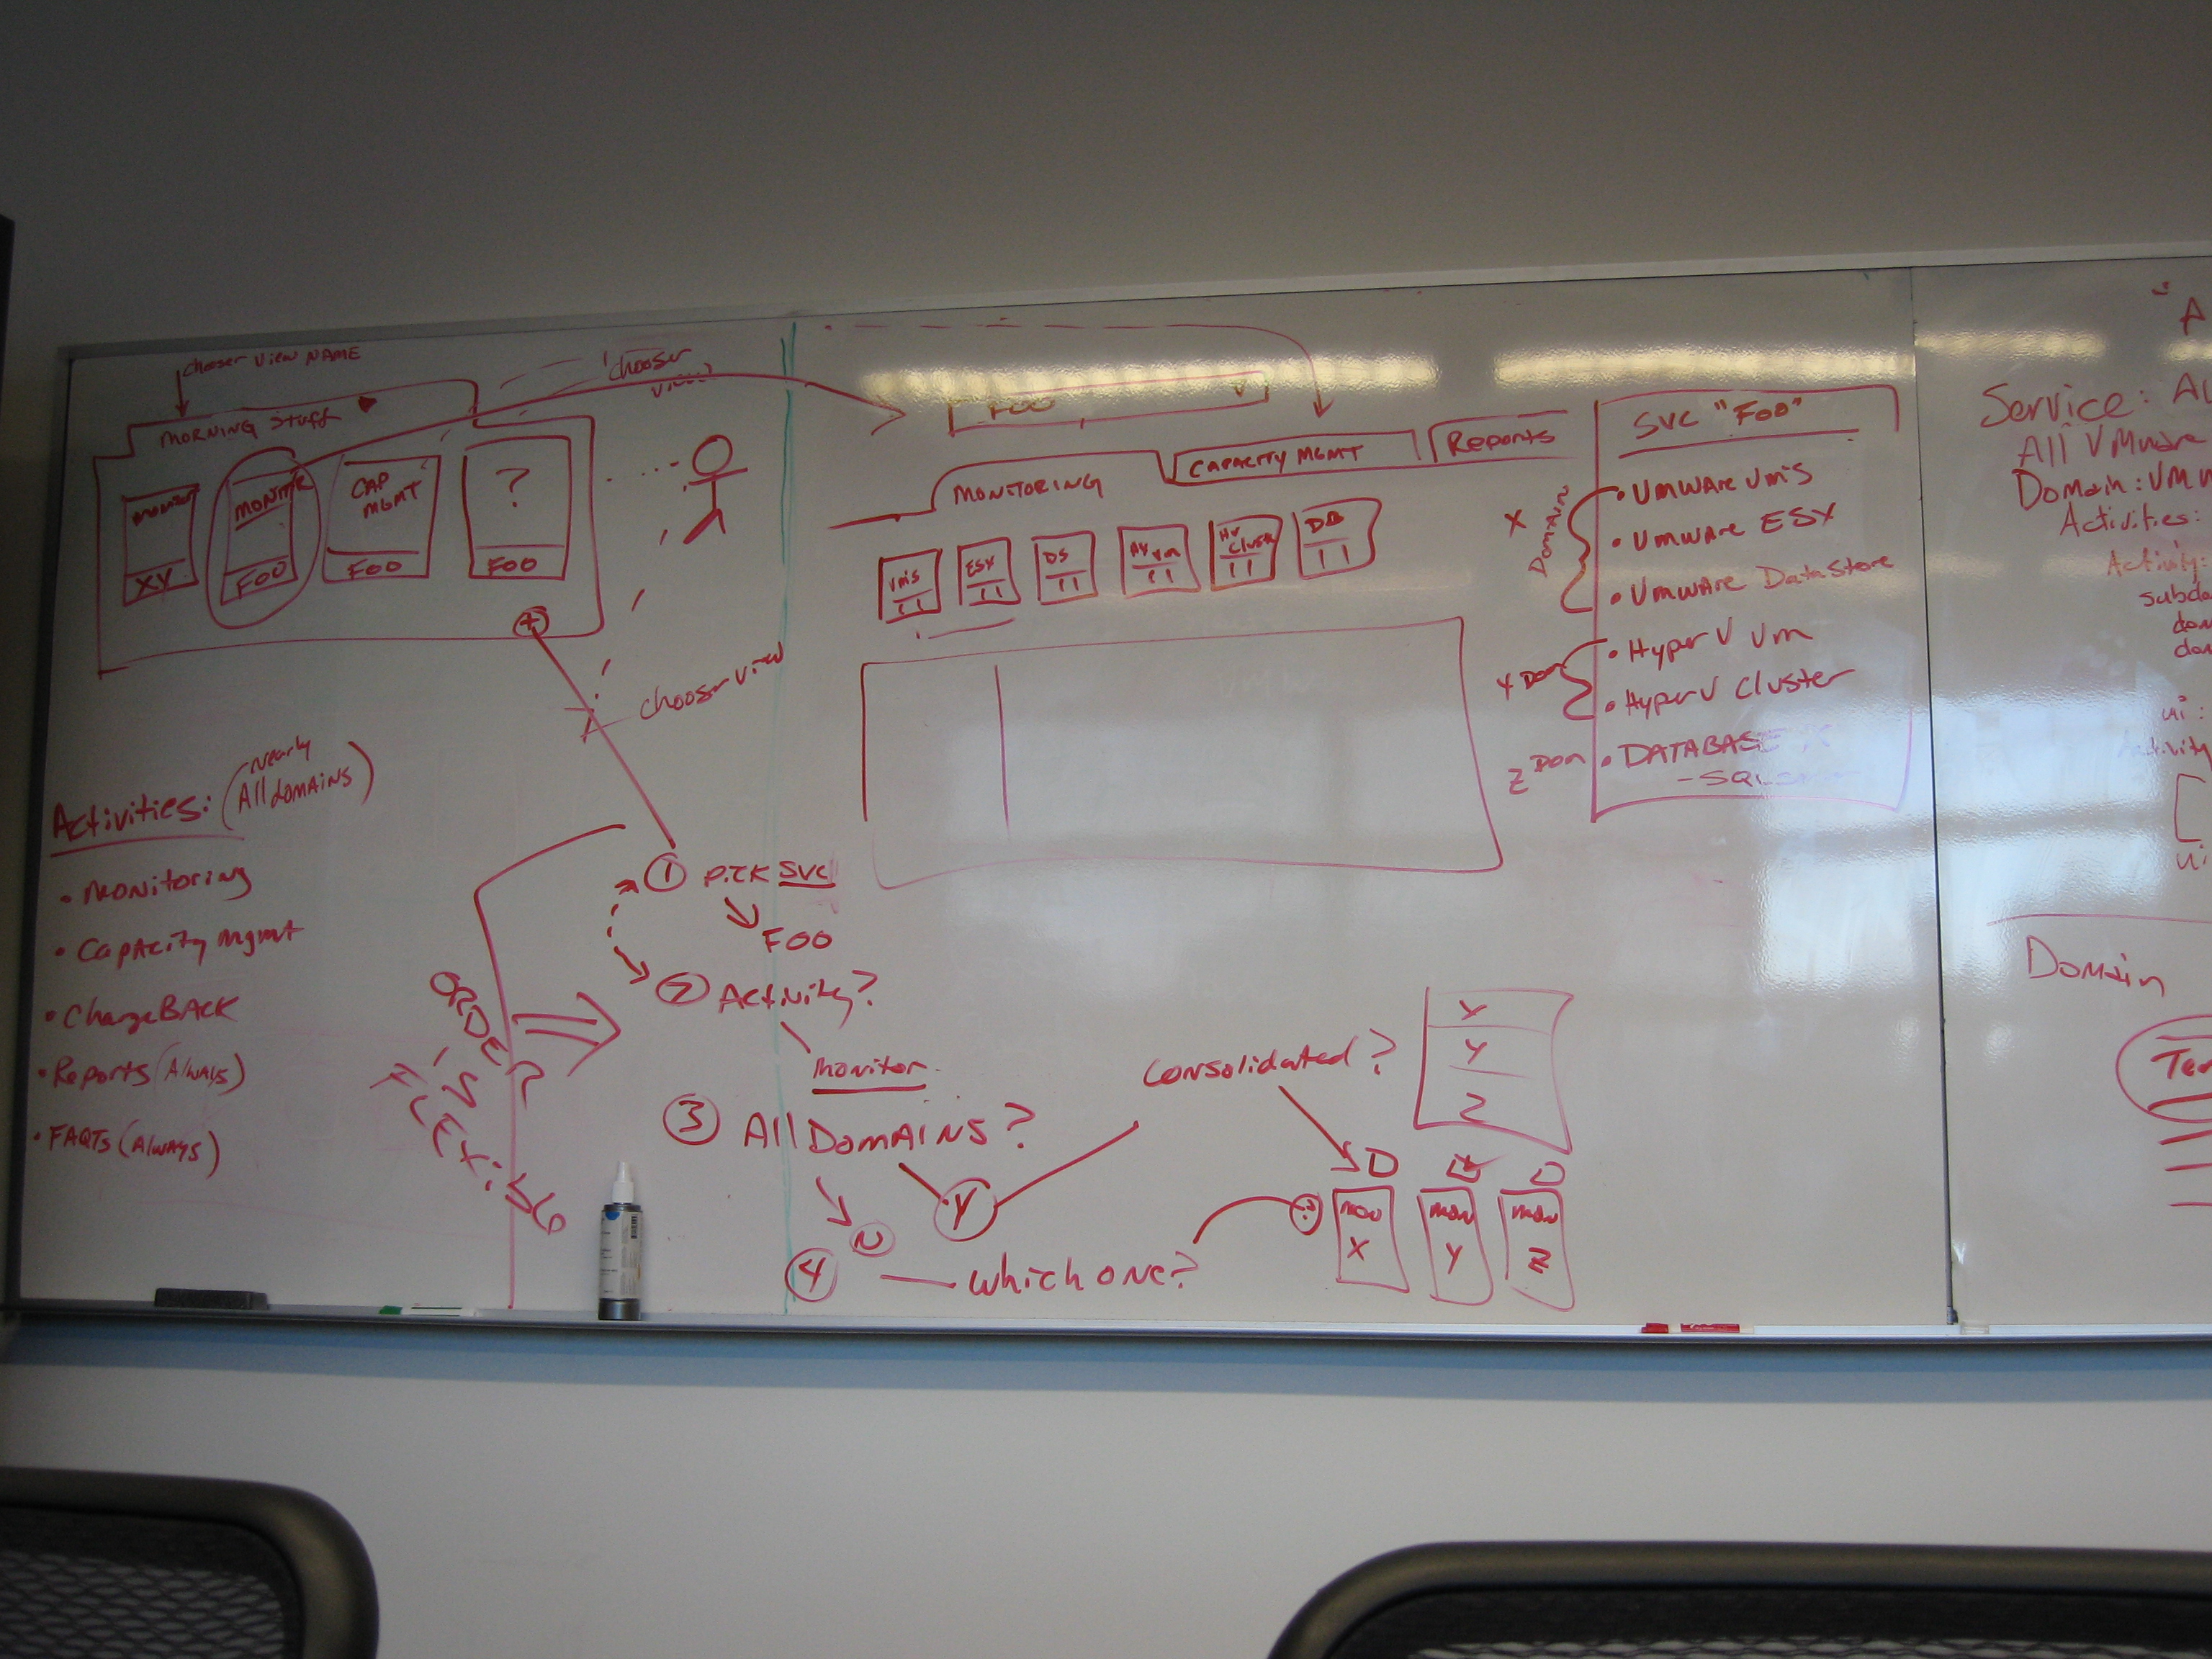 chooser view NAME
MORNING Stuff
monitor
XY
MONITR
FOO
CAP
MGMT
FOO
?
FOO
+
chooser
view
chooser view
Activities: (nearly
All domAiNS)
• monitoring
• CapAcity mgmt
• ChargeBACK
• Reports (AlwAYS)
• FAQTs (AlwAYS)
ORDER
IS
1 pick SVC
FOO
2 Activity?
monitor
3 All DomAiNS?
Y
N
4 which one?
Consolidated?
X
Y
Z
?
mon
X
mon
Y
mon
Z
FOO
MONITORING
CAPACITY MGMT
Reports
vm's
ESX
DS
HV
vm
HV
Cluster
DB
SVC "FOO"
X
Domain
• VmwAre vm's
• VmwAre ESX
• VmwAre DataStore
Y Dom
• Hyper V vm
• Hyper V Cluster
Z Dom
• DATABASE
Service:
All VMware
Domain:
Activities:
Activity:
ui:
ui
Domain